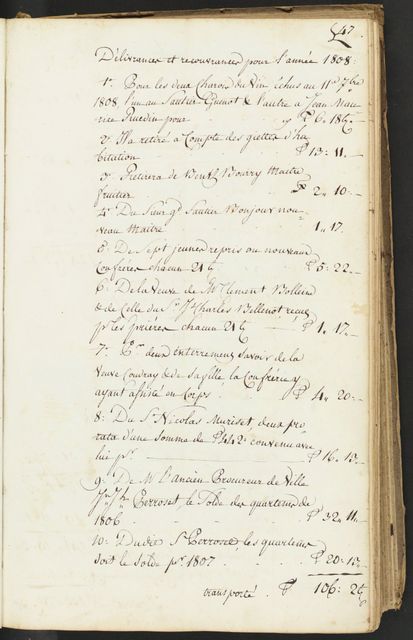 47.
Délivrances et recouvrances pour l'année 1808:
1º. Pour les deux Charois du Vin échus au 11e 7bre
1808 l'un au Sautier Guinot & l'autre à Jean Mau-
rice Ruedin pour 6. 18
2º. Il a retiré à Compte des giettes d'ha-
bitation 13: 11.
3º. Retirera de Bourry Maitre
fruitier 2. 10.
4º. Du Sieur Sautier Bonjour nou-
veau Maitre 1. 17.
5º. De Sept jeunes repris ou nouveaux
Confreres chacun 21 5: 22.
6º. De la Veuve de Mr. Clement Bolleins
& de Celle du Sr. Charles Bellenot recu
pr. les prières chacun 21 1. 17.
7º. deux enterremens savoir de la
Veuve Coudray & de sa fille la Confrérie y
ayant assisté en Corps. 4. 20:
8: Du Sr. Nicolas Muriset, deux pro-
rata d'une somme de 442 convenu avec
lui pr. 16. 13
9: De Mr. l'ancien Procureur de Ville
Perroset, le Solde des quartiers de
1806 32. 11.
10: Dudit Sr. Perroset les quartiers
soit le Solde pr. 1807. 20: 13
transporté. 106: 26